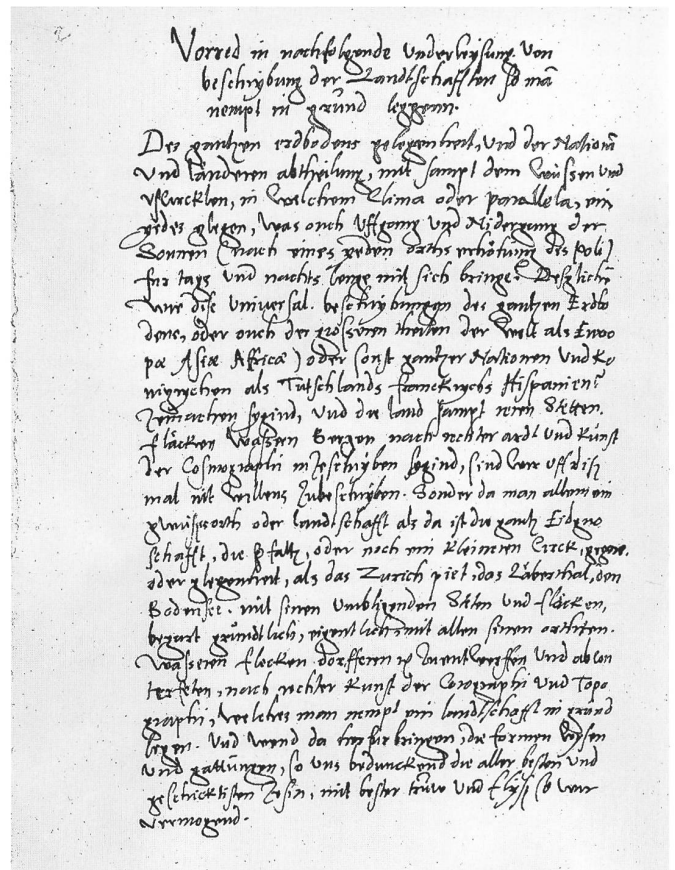 Vorred in nachfolgende underwysung von
beschrybung der Landtschafften so man
nempt in grund leggenn.
Des gantzen erdbodens gelegenheit, und der Nationen
und länderen abtheilung, mit sampt dem
in welchem Clima oder parallela, ein
yedes glegen, was ouch Uffgang und Nidergang der
Sonnen (nach eines yeden orths erhöhung des Poli)
für tags und nachts lenge mit sich bringe. Deszglichen
wie dise universal beschrybungen des gantzen Erdbo
dens, oder ouch der grösseren theilen der welt als Euro
pæ Asiæ Affricæ) oder sonst gantzer Nationen und Kö
nigrychen als Tütschlands Franckrychs Hispaniens
zemachen sygind, und die land sampt iren Stetten.
fläcken Wassern Bergen nach rechter ardt und kunst
der Cosmographi inzeschryben sygind, sind wir uff diss
mal nit willens zubeschryben. Sonder da man allein ein
oder landtschafft als da ist die gantz Eidgno
schafft, die Pfaltz, oder noch ein kleineren Circk, gegne.
oder glegenheit, als das Zurich piet, das Läberthal, den
Bodensee. mit sinen umbligenden Stetten und fläcken,
begärt grundtlich, eigentlich mit allen sinen orthen.
Wasseren flecken dörfferen zu entwerffen und abcon
terfeten, nach rechter kunst der Corographi und Topo
graphi, welches man nempt ein landtschafft in grund
legen. Und wend da herfür bringen, die formen wysen
und gattungen, so uns bedunckend die aller besten und
geschicktisten zesin, mit bester trüw und flyss so wir
vermogend.